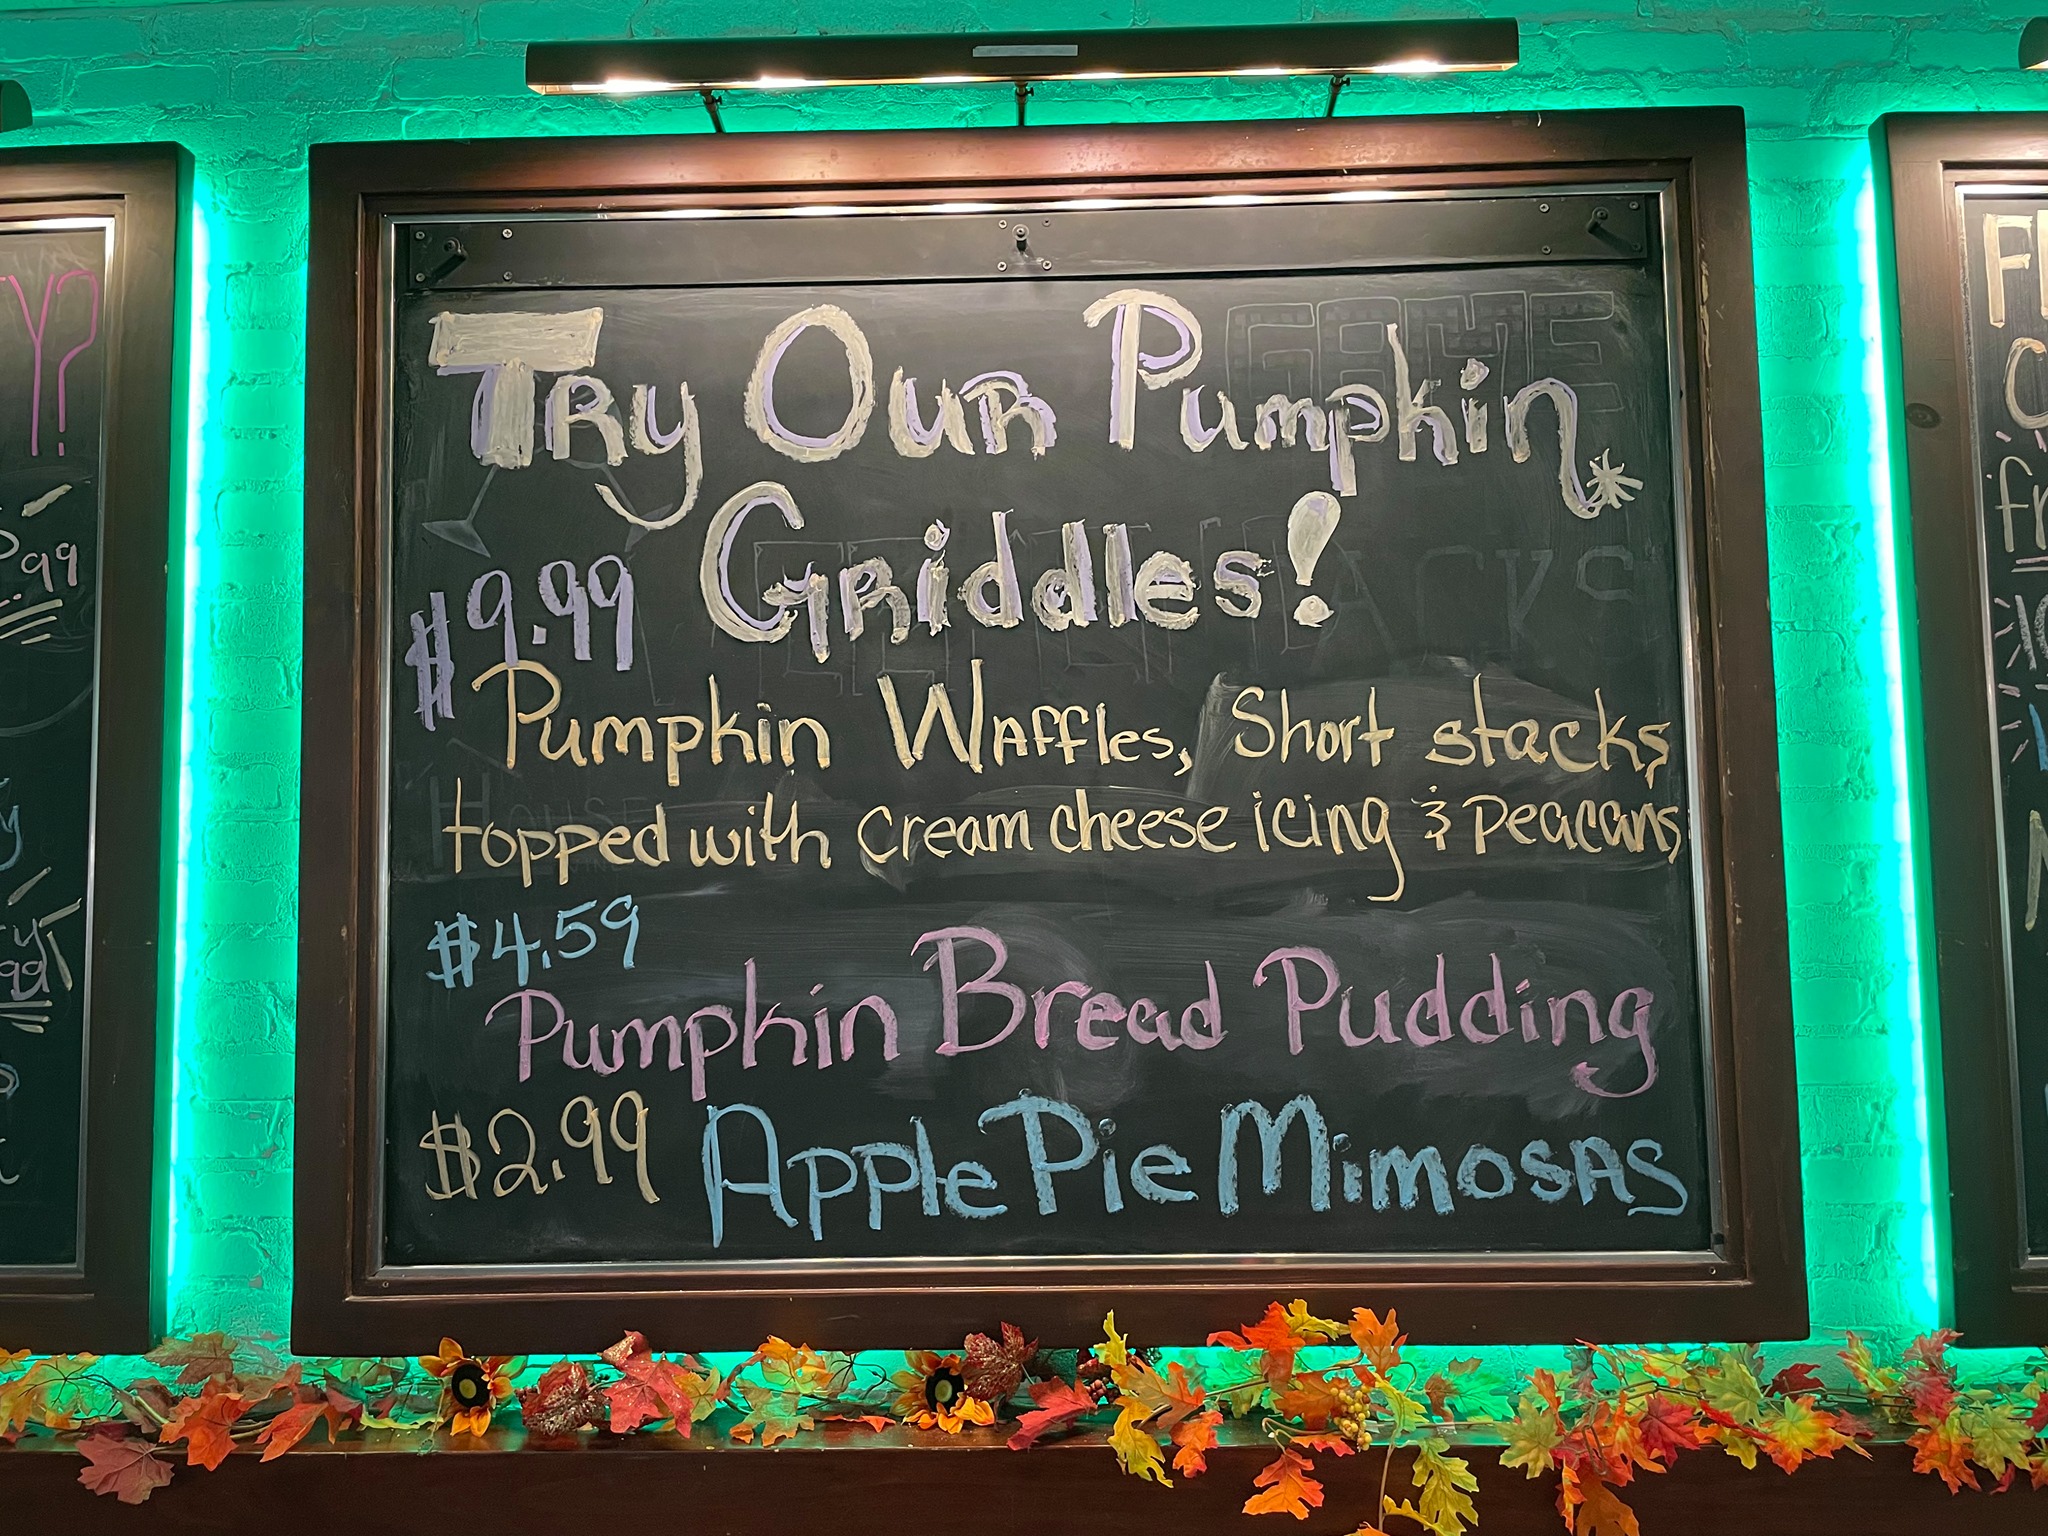 Try Our Pumpkin
Griddles!
$9.99
Pumpkin Waffles, Short stacks
topped with cream cheese icing & peacans
$4.59
Pumpkin Bread Pudding
$2.99 Apple Pie Mimosas
GAME
HOUSE
.99